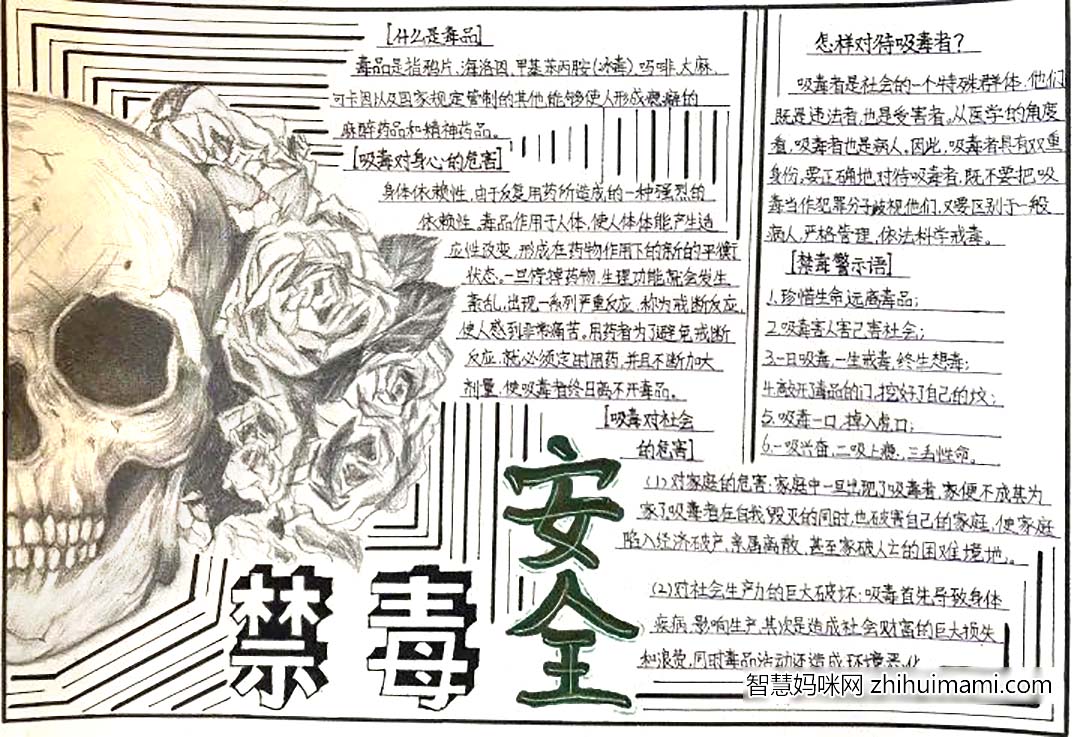 [什么是毒品]
毒品是指鸦片、海洛因、甲基苯丙胺(冰毒)、吗啡、大麻、
可卡因以及国家规定管制的其他能够使人形成瘾癖的
麻醉药品和精神药品。
[吸毒对身心的危害]
身体依赖性,由于反复用药所造成的一种强烈的
依赖性,毒品作用于人体,使人体体能产生适
应性改变,形成在药物作用下的新的平衡
状态。一旦停掉药物,生理功能就会发生
紊乱,出现一系列严重反应,称为戒断反应,
使人感到非常痛苦。用药者为了避免戒断
反应,就必须定时用药,并且不断加大
剂量,使吸毒者终日离不开毒品。
[吸毒对社会
的危害]
(1)对家庭的危害:家庭中一旦出现了吸毒者,家便不成其为
家了吸毒者在自我毁灭的同时,也破害自己的家庭,使家庭
陷入经济破产、亲属离散、甚至家破人亡的困难境地。
(2)对社会生产力的巨大破坏:吸毒首先导致身体
疾病,影响生产,其次是造成社会财富的巨大损失
和浪费,同时毒品活动还造成环境恶化
怎样对待吸毒者?
吸毒者是社会的一个特殊群体,他们
既是违法者,也是受害者。从医学的角度
看,吸毒者也是病人。因此,吸毒者具有双重
身份,要正确地对待吸毒者,既不要把吸
毒当作犯罪分子歧视他们,又要区别于一般
病人,严格管理,依法科学戒毒。
[禁毒警示语]
1.珍惜生命,远离毒品;
2.吸毒害人害己害社会;
3.一日吸毒,一生戒毒,终生想毒;
4.敲开了毒品的门,挖好了自己的坟;
5.吸毒一口,掉入虎口;
6.一吸兴奋,二吸上瘾,三丢性命。
禁毒
安全
智慧妈咪网 zhihuimami.com